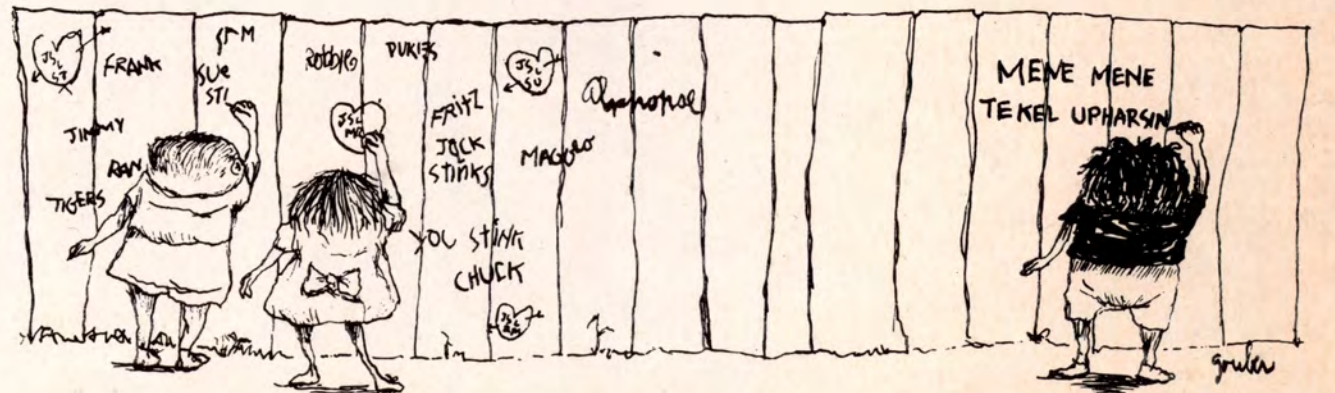 JSL
SJ
FRANK
JIMMY
RAN
TIGERS
SAM
SUE
STI
Robbie
JSL
MR
DUKIES
FRITZ
JOCK
STINKS
YOU STINK
CHUCK
JSL
SU
MAGOO
MENE MENE
TEKEL UPHARSIN
gruber